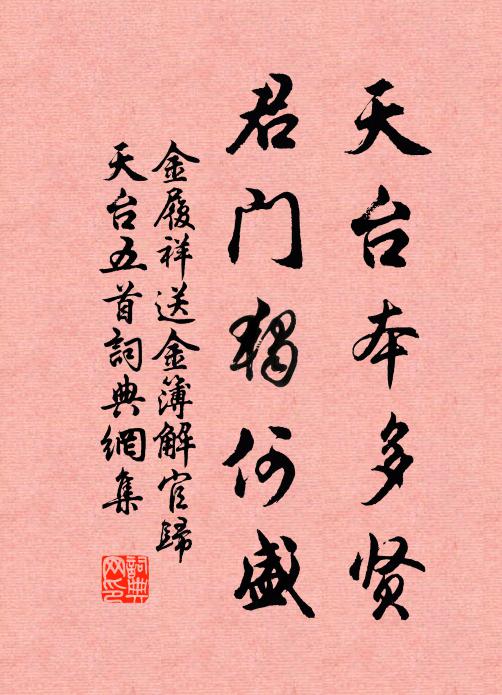 天台本多贤
君门独何盛
金履祥送金簿解官歸
天台五首詞典網集
詞典網印